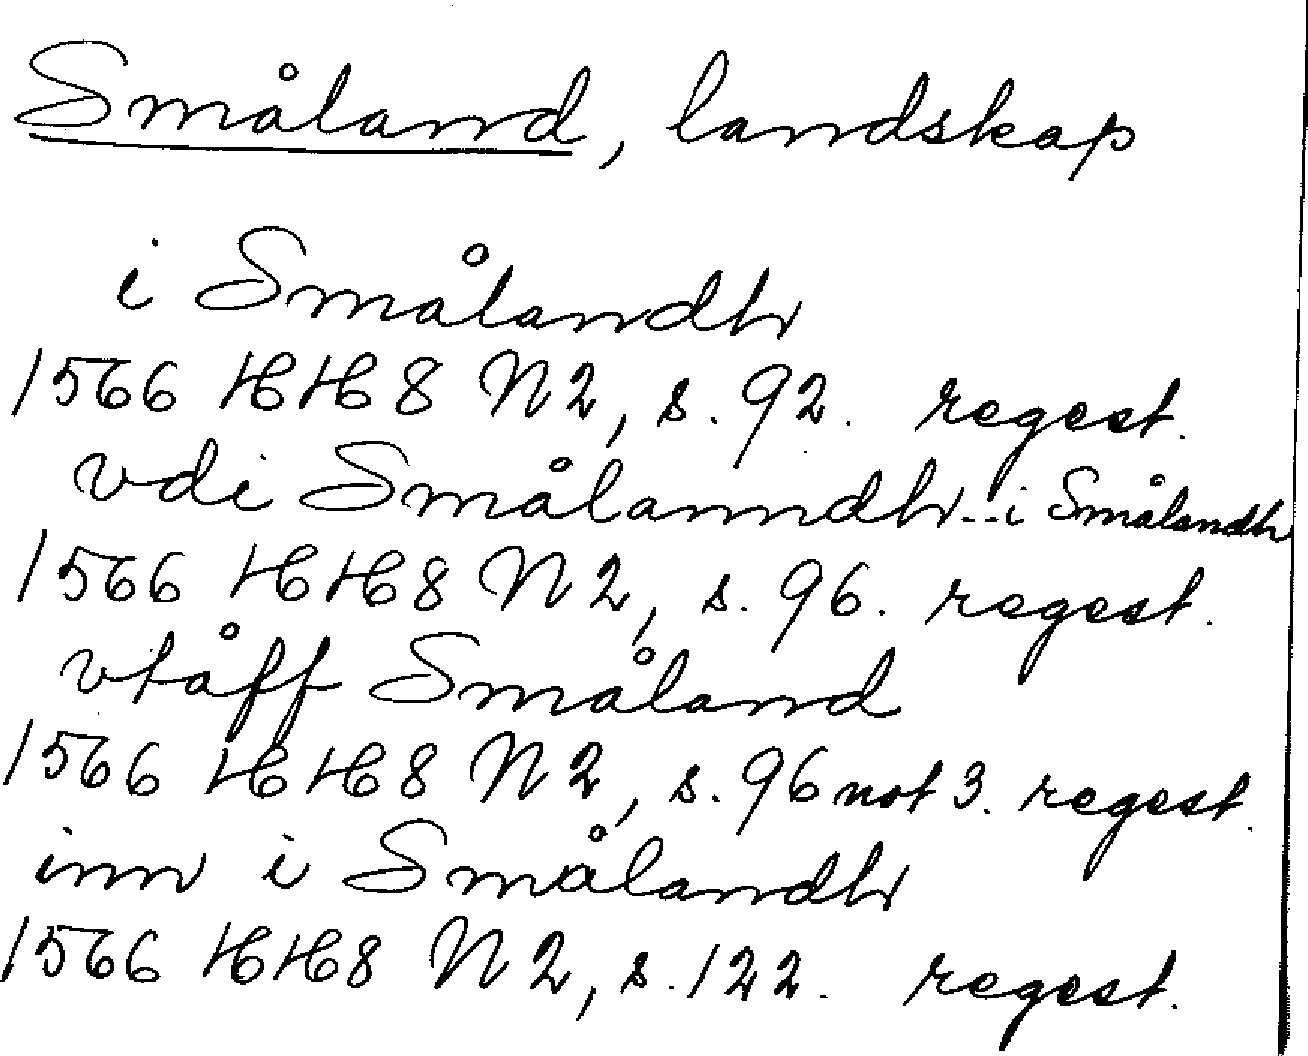 Småland, landskap
i Smålandh
1566 HH8 N2, s. 92. regest.
vdi Smålanndh... i Smålandh
1566 HH8 N2, s. 96. regest.
vtåff Småland
1566 HH8 N2, s. 96 not 3. regest.
inn i Smålandh
1566 HH8 N2, s. 122. regest.